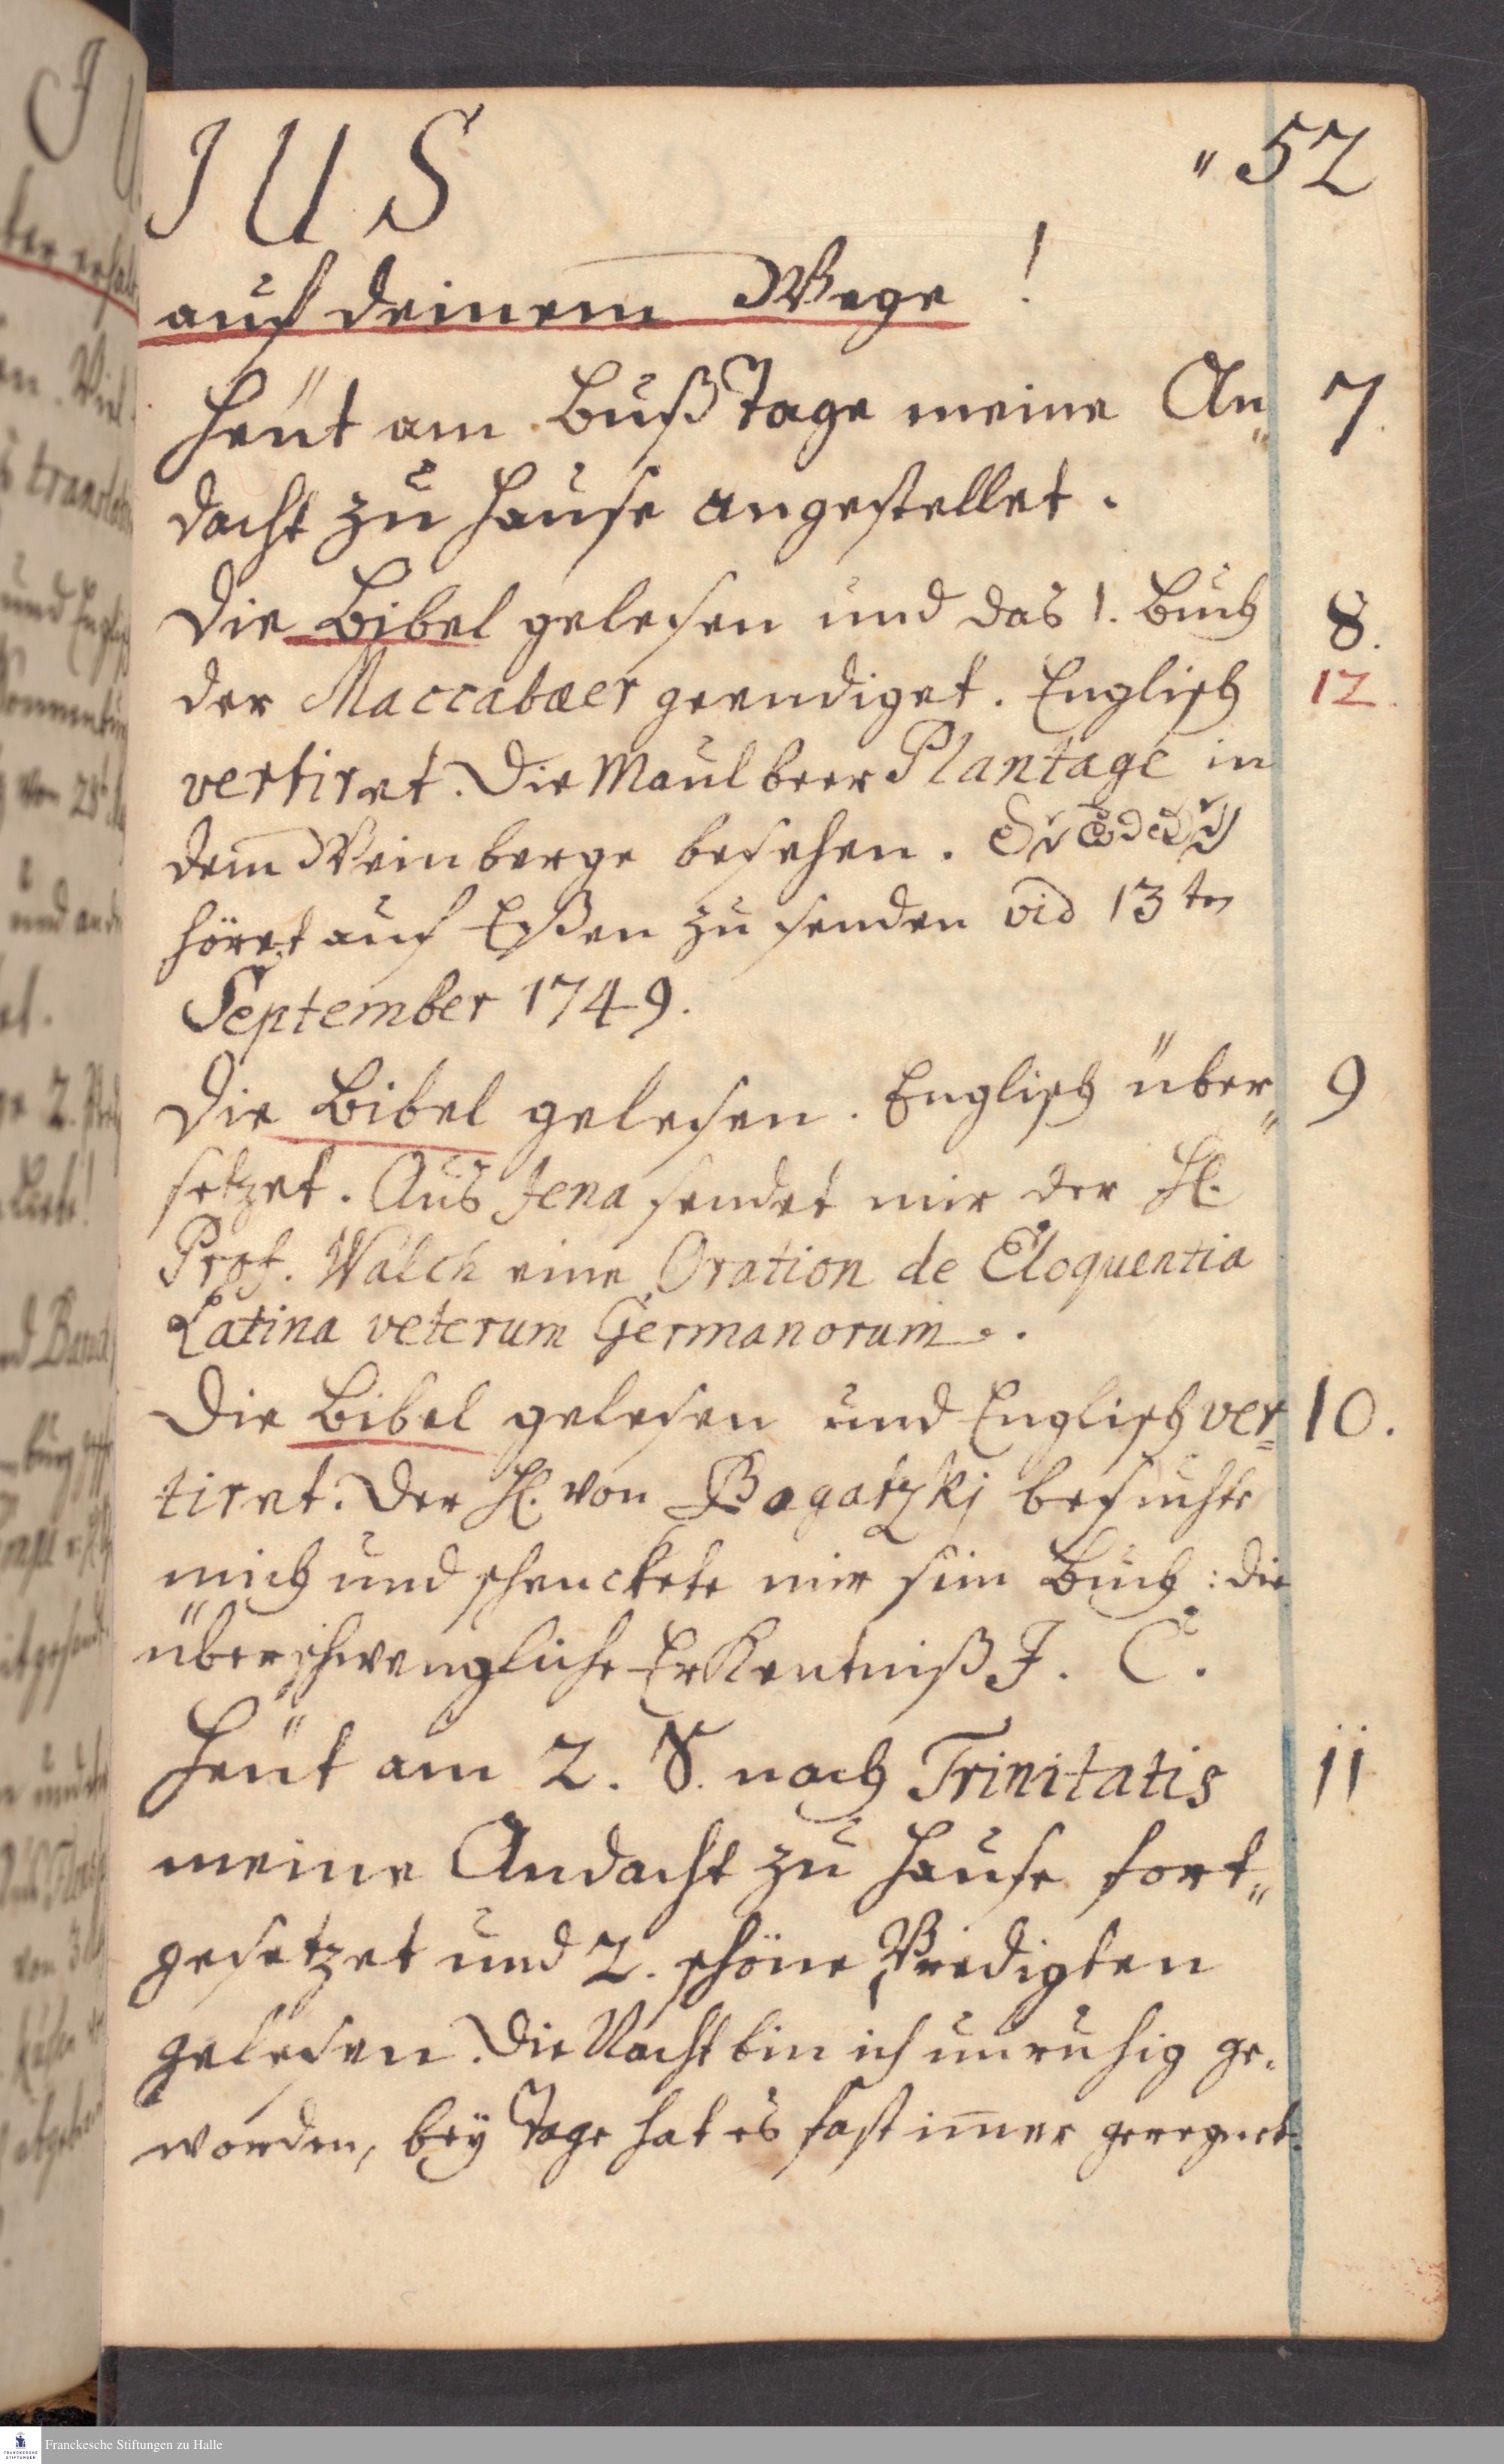 JUS
„ 52
auf deinem Wege !
Heüt am Bußtage meine An„ 7.
dacht zu Hause angestellet.
Die Bibel gelesen und das 1. Buch 8.
der Maccabæer geendiget. Englisch 12.
vertiret. Die Maulbeer Plantage in
dem Weinberge besehen.
höret auf Eßen zu senden vid 13tn
September 1749.
Die Bibel gelesen. Englisch über„ 9
setzet. Aus Jena sendet mir der H.
Prof. Walch eine Oration de Eloquentia
Latina veterum Germanorum.
Die Bibel gelesen und Englisch ver= 10.
tiret. Der H. von Bogatzkj besuchte
mich und schenckete mir sein Buch: die
überschwengliche Erkentniß J. C.
Heüt am 2. S. nach Trinitatis 11
meine Andacht zu Hause fort„
gesetzet und 2. schöne Predigten
gelesen. Die Nacht bin ich unruhig ge„
worden, bey Tage hat es fast im̄er geregnet.
Franckesche Stiftungen zu Halle